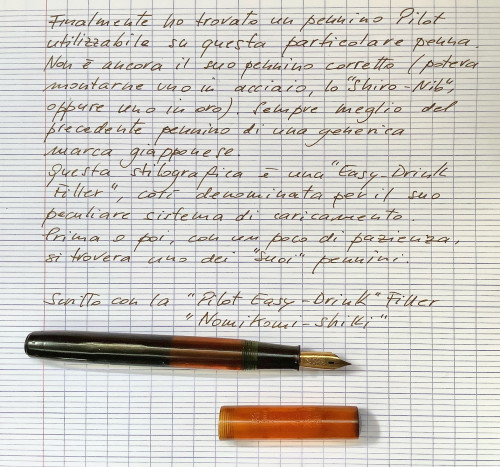 Finalmente ho trovato un pennino Pilot
utilizzabile su questa particolare penna.
Non è ancora il suo pennino corretto (poteva
montarne uno in acciaio, lo "Shiro-Nib",
oppure uno in oro). Sempre meglio del
precedente pennino di una generica
marca giapponese.
Questa stilografica è una "Easy-Drink
Filler", così denominata per il suo
peculiare sistema di caricamento.
Prima o poi, con un poco di pazienza,
si troverà uno dei "suoi" pennini.
Scritto con la "Pilot Easy-Drink" Filler
"Nomikomi-Shiki"